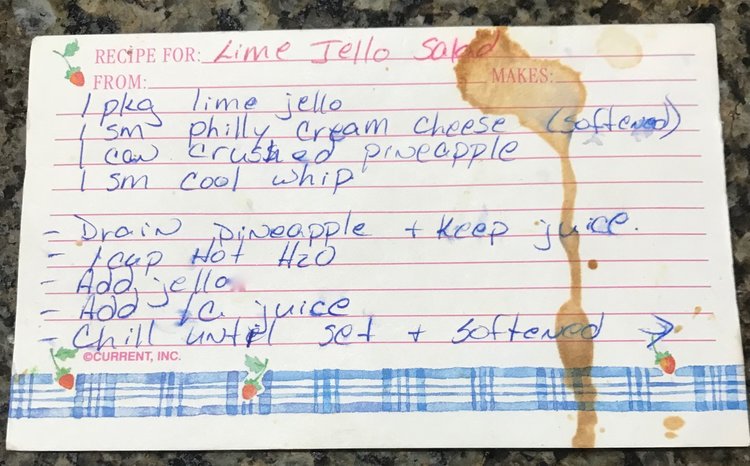 RECIPE FOR: Lime Jello Salad
FROM: MAKES:
1 pkg lime jello
1 sm philly cream cheese (softened)
1 can crushed pineapple
1 sm cool whip
- Drain pineapple + Keep juice.
- 1 cup Hot H2O
- Add jello
- Add 1 c. juice
- Chill until set + softened →
©CURRENT, INC.